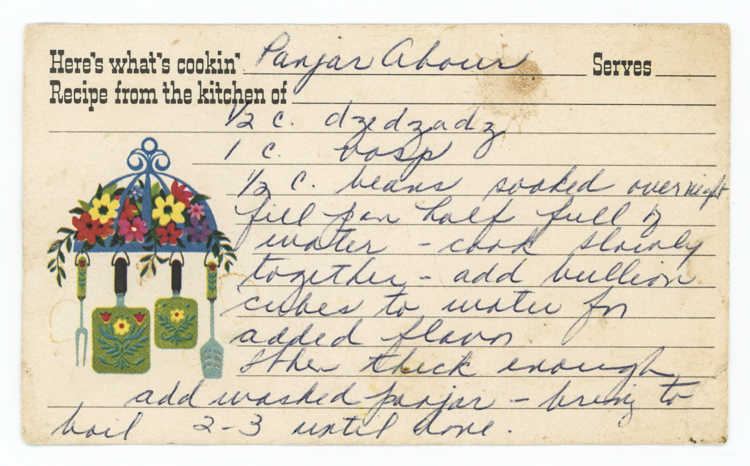 Here's what's cookin' Panjar Abour Serves
Recipe from the kitchen of
1/2 c. dzedzadz
1 c. vosp
1/2 c. beans soaked overnight
fill pan half full of
water - cook slowly
together - add bullion
cubes to water for
added flavor
When thick enough
add washed panjar - bring to
boil 2-3 until done.